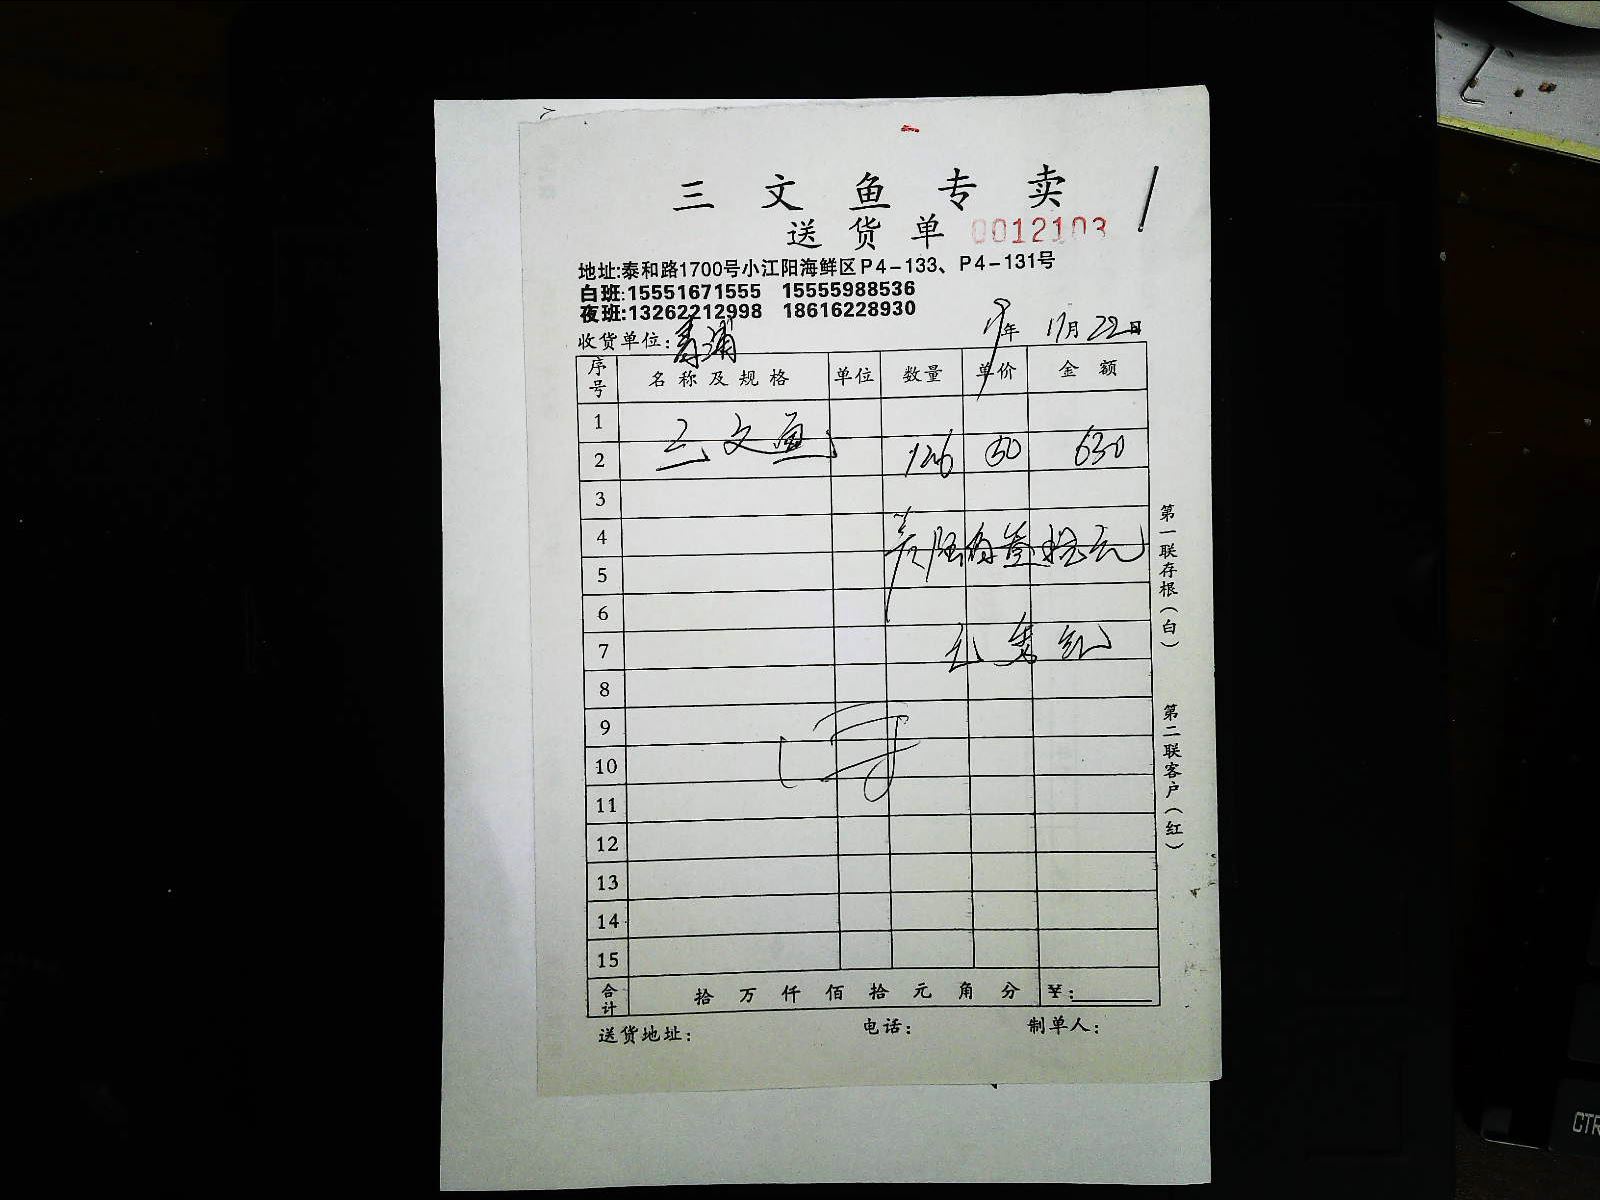 三文鱼专卖
送货单 0012103
地址:泰和路1700号小江阳海鲜区P4-133、P4-131号
白班:15551671555 15555988536
夜班:13262212998 18616228930
收货单位:青浦 年 11月22日
序号 名称及规格 单位 数量 单价 金额
1
2 三文鱼 126 50 630
3
4
5 陆佰叁拾元
6
7
8
9
10
11
12
13
14
15
合计 拾 万 仟 佰 拾 元 角 分 ¥:
送货地址: 电话: 制单人:
第一联存根(白)
第二联客户(红)
CTR